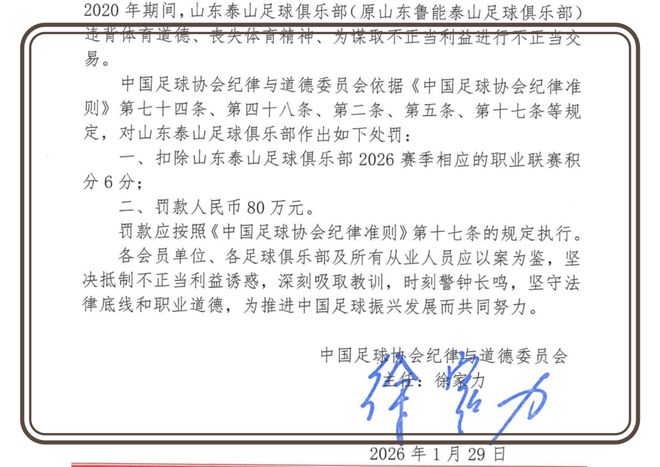 2020 年期间,山东泰山足球俱乐部(原山东鲁能泰山足球俱乐部)
违背体育道德、丧失体育精神、为谋取不正当利益进行不正当交
易。
中国足球协会纪律与道德委员会依据《中国足球协会纪律准
则》第七十四条、第四十八条、第二条、第五条、第十七条等规
定,对山东泰山足球俱乐部作出如下处罚:
一、扣除山东泰山足球俱乐部 2026 赛季相应的职业联赛积
分 6 分;
二、罚款人民币 80 万元。
罚款应按照《中国足球协会纪律准则》第十七条的规定执行。
各会员单位、各足球俱乐部及所有从业人员应以案为鉴,坚
决抵制不正当利益诱惑,深刻吸取教训,时刻警钟长鸣,坚守法
律底线和职业道德,为推进中国足球振兴发展而共同努力。
中国足球协会纪律与道德委员会
主任:徐家力
徐家力
2026 年 1 月 29 日